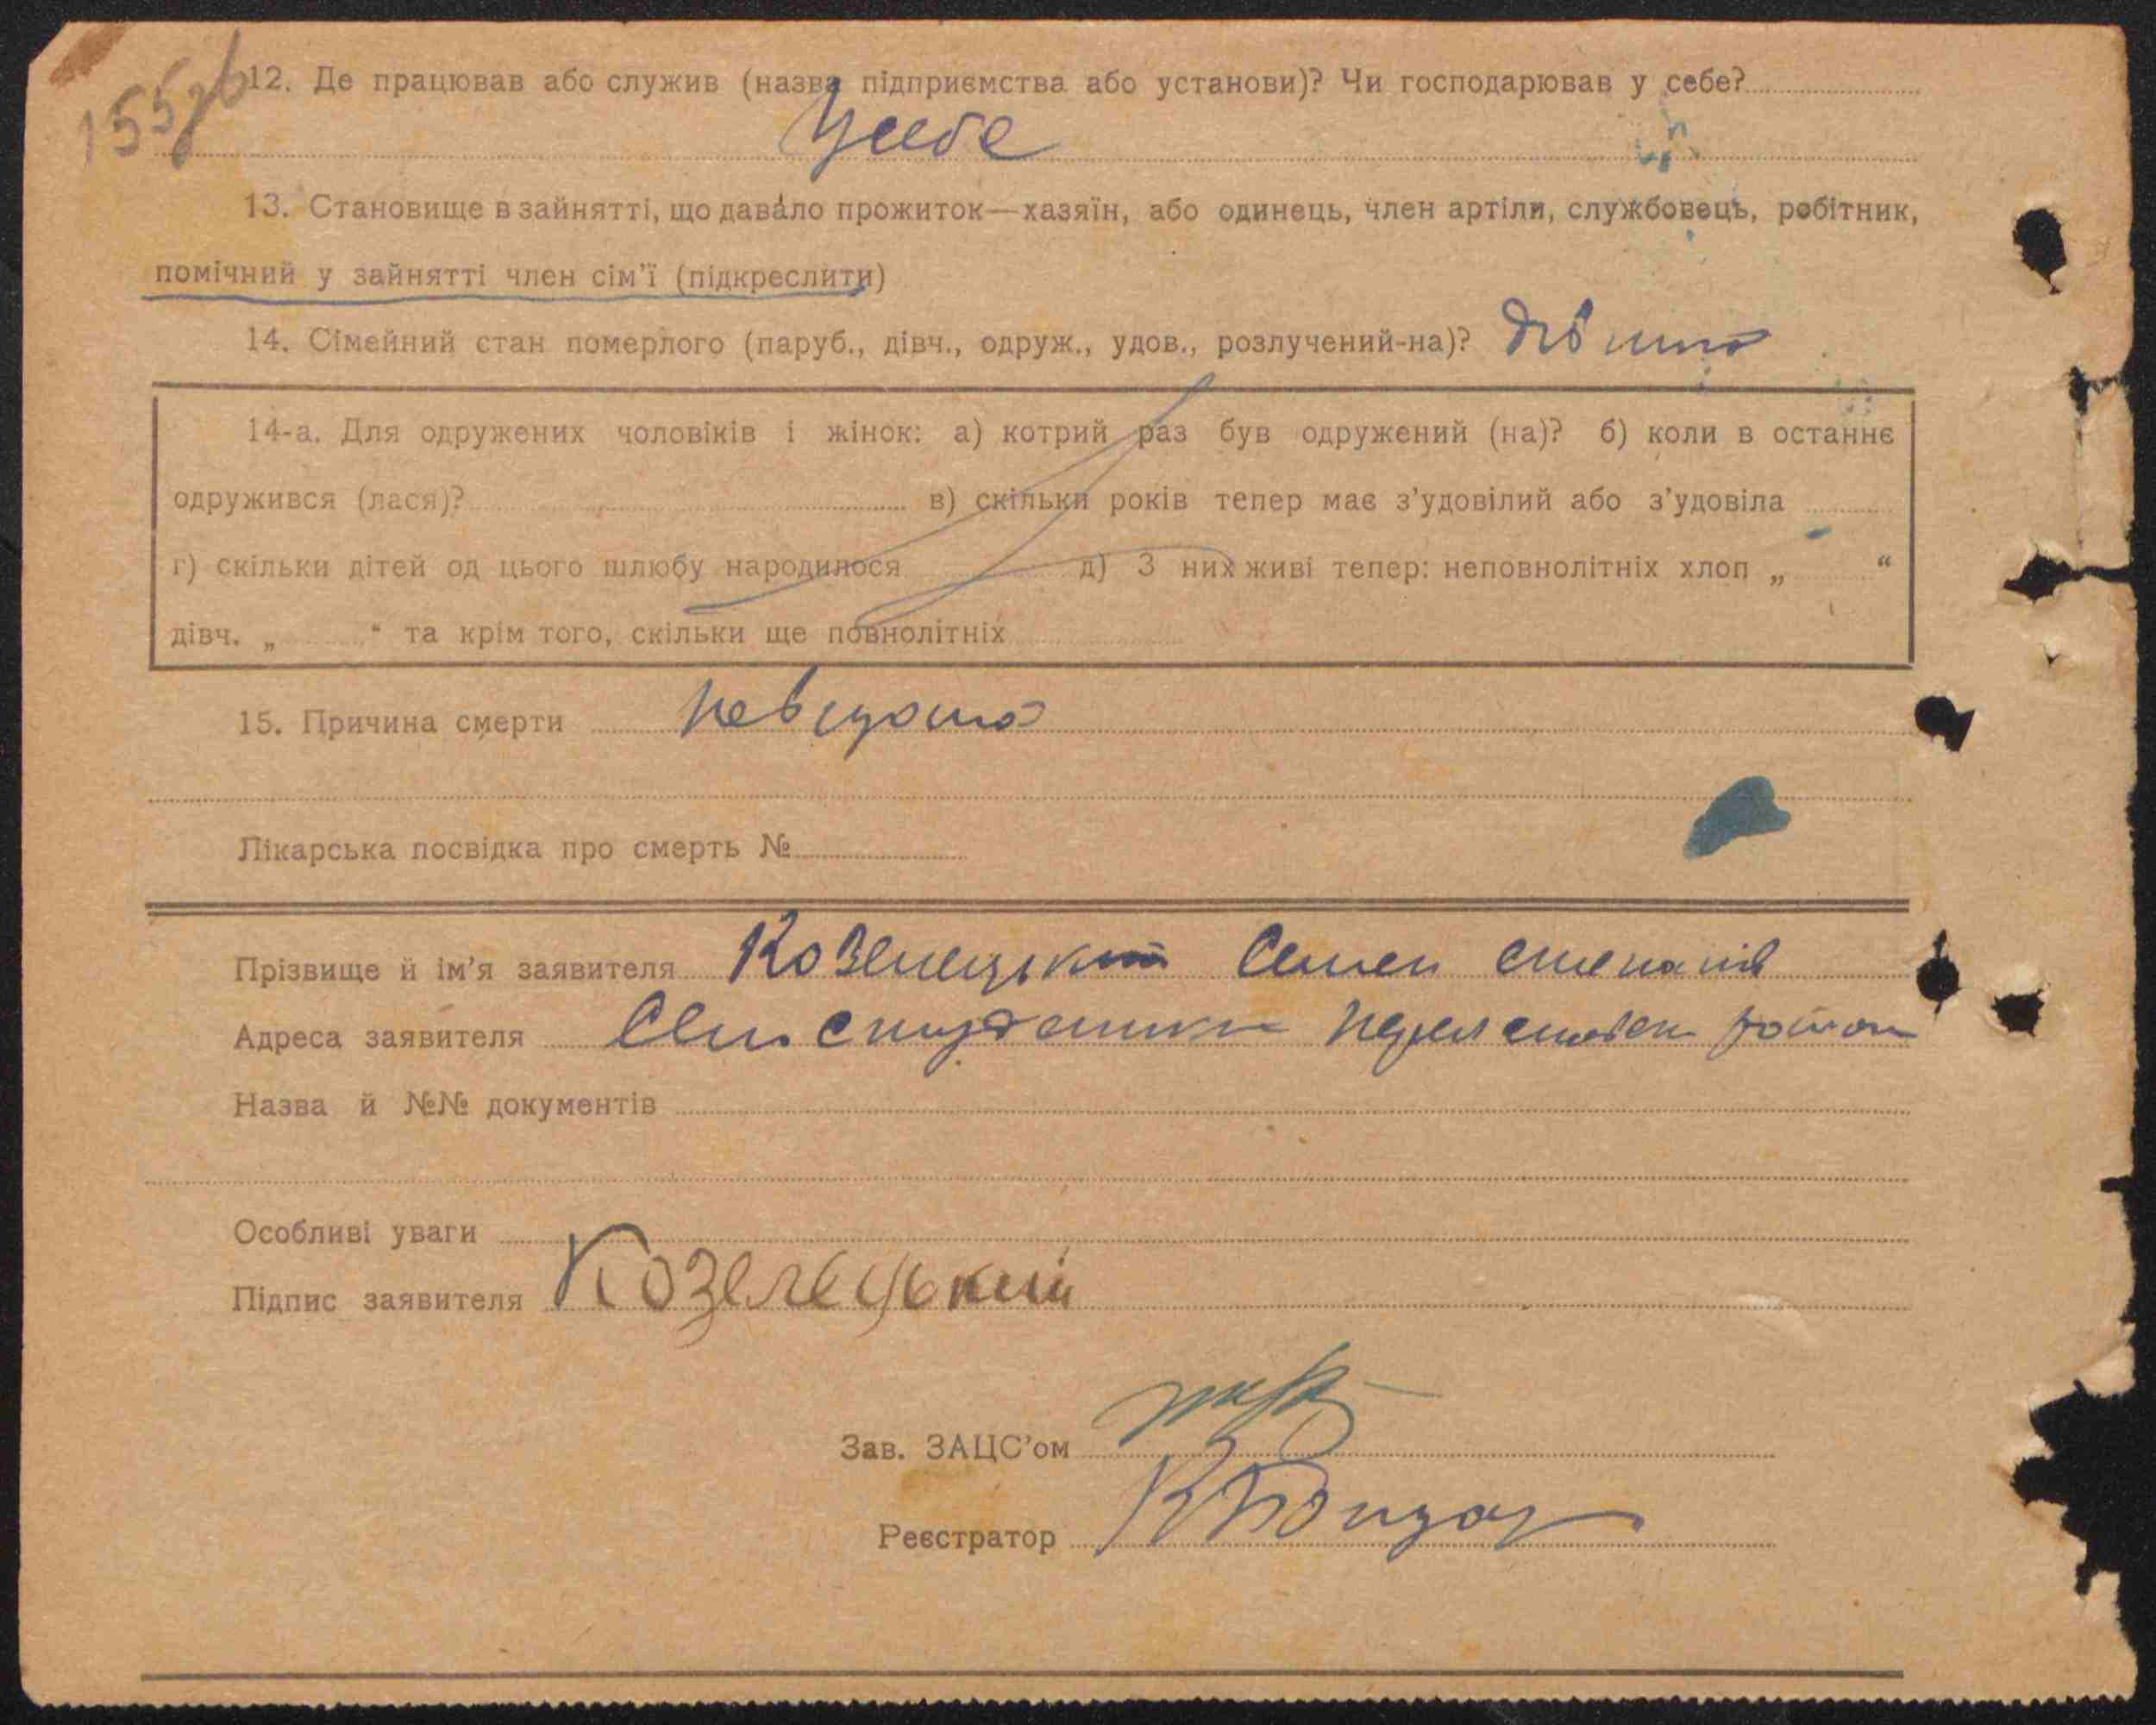 155зв
12. Де працював або служив (назва підприємства або установи)? Чи господарював у себе?
У себе
13. Становище в зайнятті, що давало прожиток—хазяїн, або одинець, член артіли, службовець, робітник,
помічний у зайнятті член сім'ї (підкреслити)
14. Сімейний стан померлого (паруб., дівч., одруж., удов., розлучений-на)?
14-а. Для одружених чоловіків і жінок: а) котрий раз був одружений (на)? б) коли в останнє
одружився (лася)? в) скільки років тепер має з'удовілий або з'удовіла
г) скільки дітей од цього шлюбу народилося д) З них живі тепер: неповнолітніх хлоп „ “
дівч. „ “ та крім того, скільки ще повнолітніх
15. Причина смерти невідома
Лікарська посвідка про смерть №
Прізвище й ім'я заявителя Козелецький Семен Степанів
Адреса заявителя район
Назва й №№ документів
Особливі уваги
Підпис заявителя Козелецький
Зав. ЗАЦС'ом
Реєстратор К Бондар